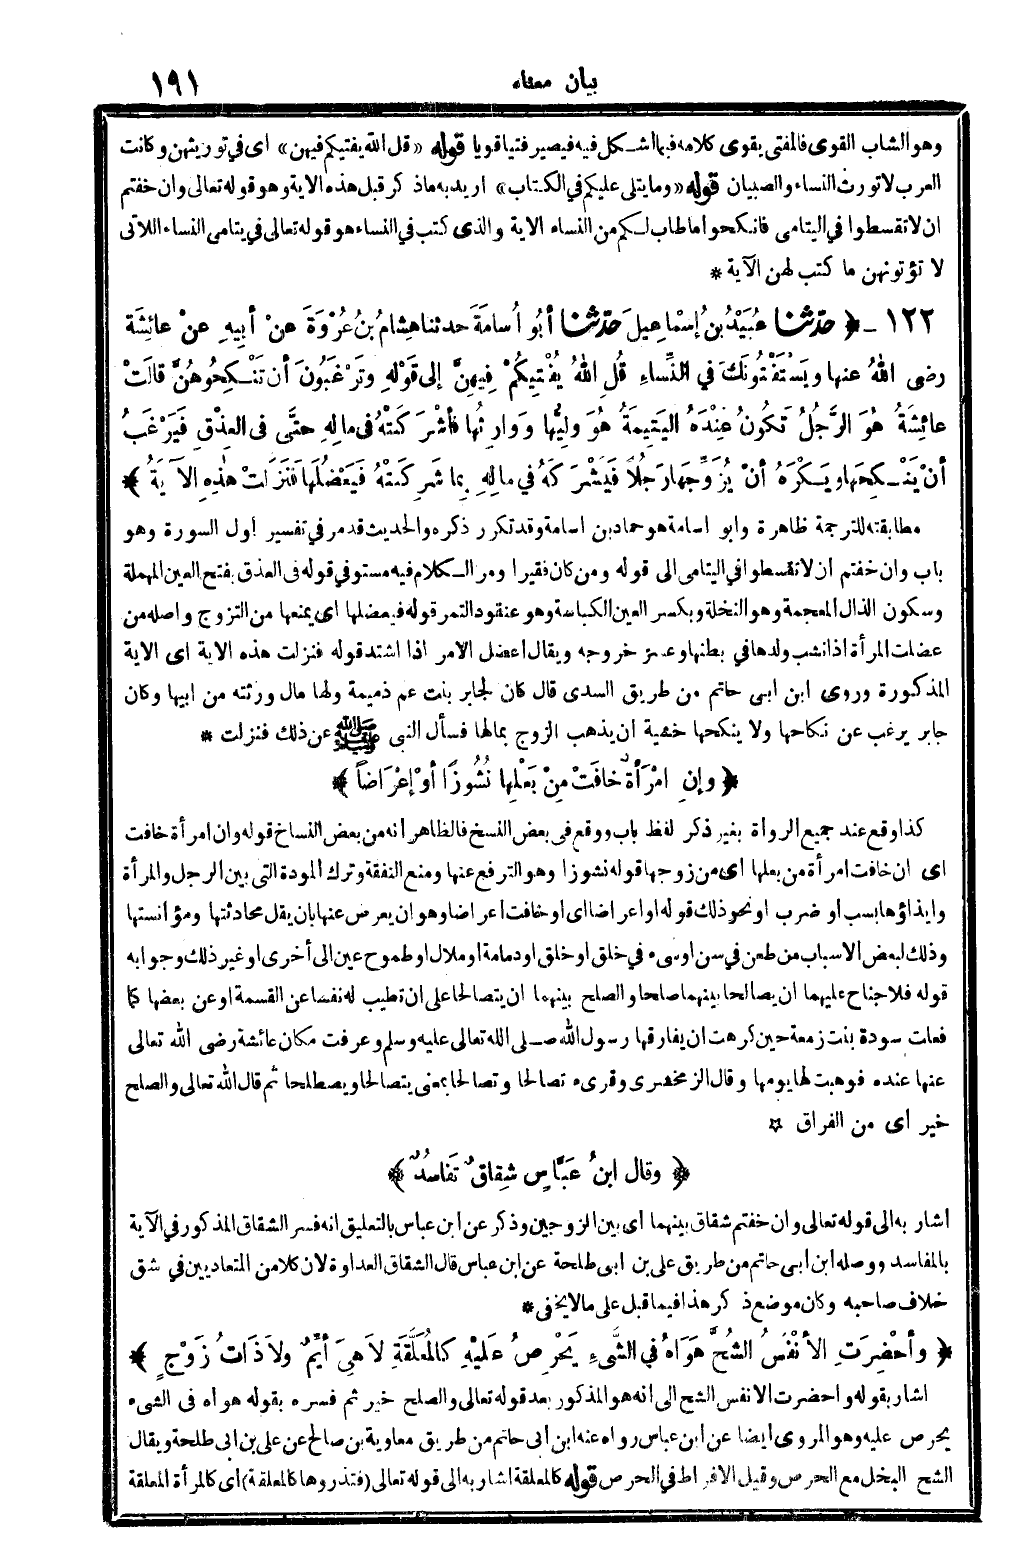 بيان معناه ١٩١
وهو الشاب القوى فالمفتى يقوى كلامه فيما اشكل فيه فيصير فتيا قويا قوله «قل الله يفتيكم فيهن» اى فى توريثهن وكانت
العرب لا تورث النساء والصبيان قوله «وما يتلى عليكم في الكتاب» اريد به ماذكر قبل هذه الاية وهو قوله تعالى وان خفتم
ان لا تقسطوا في اليتامى فانكحوا ما طاب لكم من النساء الاية والذى كتب في النساء هو قوله تعالى في يتامى النساء اللاتى
لا تؤتونهن ما كتب لهن الآية *
١٢٢ ـ ﴿ حدّثنا عُبَيْدُ بنُ إسْماعِيلَ حَدّثنا أبُو أُسامَةَ حدثنا هِشامُ بنُ عُرْوَةَ عنْ أبِيهِ عنْ عائِشَةَ
رضى اللهُ عنها ويَسْتَفْتُونَكَ في النِّساءِ قُلِ اللهُ يُفْتِيكُمْ فِيهِنَّ إلى قَوْلِهِ وتَرْغَبُونَ أنْ تَنْكِحُوهُنَّ قالَتْ
عائِشَةُ هُوَ الرَّجُلُ تَكُونُ عِنْدَهُ اليَتِيمَةُ هُوَ ولِيُّها وَوَارِثُها فأشْرَكَتْهُ فى مالِهِ حتَّى فى العِذْقِ فَيَرْغَبُ
أنْ يَنْكِحَها ويَكْرَهُ أنْ يُزَوِّجَها رَجُلًا فَيَشْرَكَهُ في مالِهِ بِما شَرِكَتْهُ فَيَعْضُلَها فَنَزَلَتْ هٰذِهِ الآيَةُ ﴾
مطابقته للترجمة ظاهرة وابو اسامة هو حماد بن اسامة وقد تكرر ذكره والحديث قد مر في تفسير اول السورة وهو
باب وان خفتم ان لا تقسطوا في اليتامى الى قوله ومن كان فقيرا ومر الكلام فيه مستوفي قوله فى العذق بفتح العين المهملة
وسكون الذال المعجمة وهو النخلة وبكسر العين الكباسة وهو عنقود التمر قوله فيعضلها اى يمنعها من التزوج واصله من
عضلت المرأة اذا نشب ولدها في بطنها وعسر خروجه ويقال اعضل الامر اذا اشتد قوله فنزلت هذه الاية اى الاية
المذكورة وروى ابن ابى حاتم من طريق السدى قال كان لجابر بنت عم ذميمة ولها مال ورثته من ابيها وكان
جابر يرغب عن نكاحها ولا ينكحها خشية ان يذهب الزوج بمالها فسأل النبى ﷺ عن ذلك فنزلت *
﴿ وإنِ امْرَأةٌ خافَتْ مِنْ بَعْلِها نُشُوزًا أوْ إعْرَاضاً ﴾
كذا وقع عند جميع الرواة بغير ذكر لفظ باب ووقع فى بعض النسخ فالظاهر انه من بعض النساخ قوله وان امرأة خافت
اى ان خافت امرأة من بعلها اى من زوجها قوله نشوزا وهو الترفع عنها ومنع النفقة وترك المودة التى بين الرجل والمرأة
وايذاؤها بسب او ضرب او نحو ذلك قوله او اعراضا اى او خافت اعراضا وهو ان يعرض عنها بان يقل محادثتها ومؤانستها
وذلك لبعض الاسباب من طعن في سن او سىء في خلق او خلق او دمامة او ملال او طموح عين الى أخرى او غير ذلك وجوابه
قوله فلا جناح عليهما ان يصالحا بينهما صلحا والصلح بينهما ان يتصالحا على ان تطيب له نفسا عن القسمة او عن بعضها كما
فعلت سودة بنت زمعة حين كرهت ان يفارقها رسول الله صلى الله تعالى عليه وسلم وعرفت مكان عائشة رضى الله تعالى
عنها عنده فوهبت لها يومها وقال الزمخشرى وقرىء تصالحا وتصالحا بمعنى يتصالحا ويصطلحا ثم قال الله تعالى والصلح
خير اى من الفراق *
﴿ وقال ابنُ عَبَّاسٍ شِقاقٌ تَفاسُدٌ ﴾
اشار به الى قوله تعالى وان خفتم شقاق بينهما اى بين الزوجين وذكر عن ابن عباس بالتعليق انه فسر الشقاق المذكور في الآية
بالمفاسد ووصله ابن أبى حاتم من طريق على بن ابى طلحة عن ابن عباس قال الشقاق العداوة لان كلا من المتعاديين في شق
خلاف صاحبه وكان موضع ذكر هذا فيما قبل على ما لا يخفى *
﴿ وأُحْضِرَتِ الأنْفُسُ الشُّحَّ هَوَاهُ في الشَّيءِ يَحْرِصُ عَلَيْهِ كالمُعَلَّقَةِ لاَ هِىَ أيِّمٌ ولاَ ذَاتُ زَوْجٍ ﴾
اشار بقوله واحضرت الانفس الشح الى انه هو المذكور بعد قوله تعالى والصلح خير ثم فسره بقوله هواه فى الشىء
يحرص عليه وهو المروى ايضا عن ابن عباس رواه عنه ابن ابى حاتم من طريق معاوية بن صالح عن على بن ابى طلحة ويقال
الشح البخل مع الحرص وقيل الافراط في الحرص قوله كالمعلقة اشار به الى قوله تعالى (فتذروها كالمعلقة) اى كالمرأة المعلقة